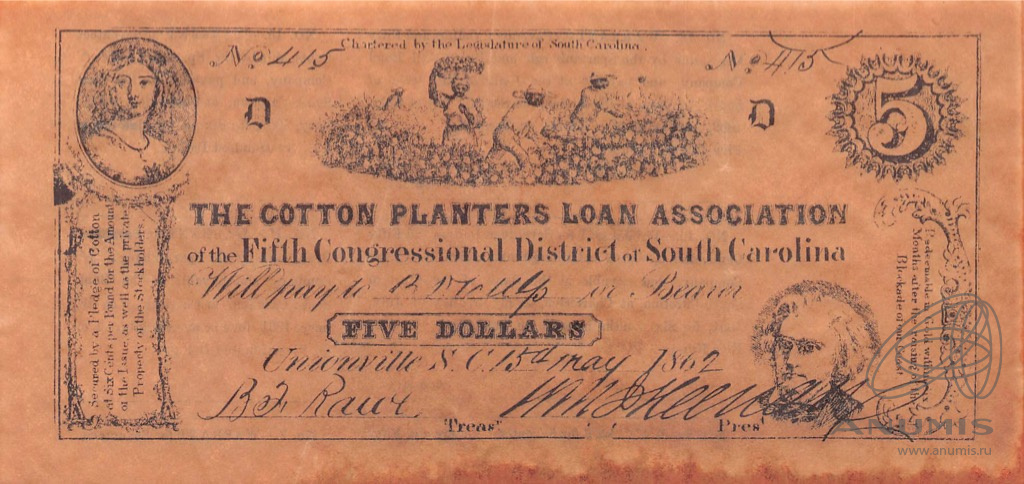 Chartered by the Legislature of South Carolina.
No 415
No 415
D
D
5
THE COTTON PLANTERS LOAN ASSOCIATION
of the Fifth Congressional District of South Carolina
Will pay to or Bearer
FIVE DOLLARS
Unionville S.C. 15 May 1862
Treas
Pres
Secured by a Pledge of Cotton
at Six Cents per Pound for the Amount
of the Issue, as well as the private
Property of the Stockholders
Months after the
Blockade of our
ANUMIS
www.anumis.ru